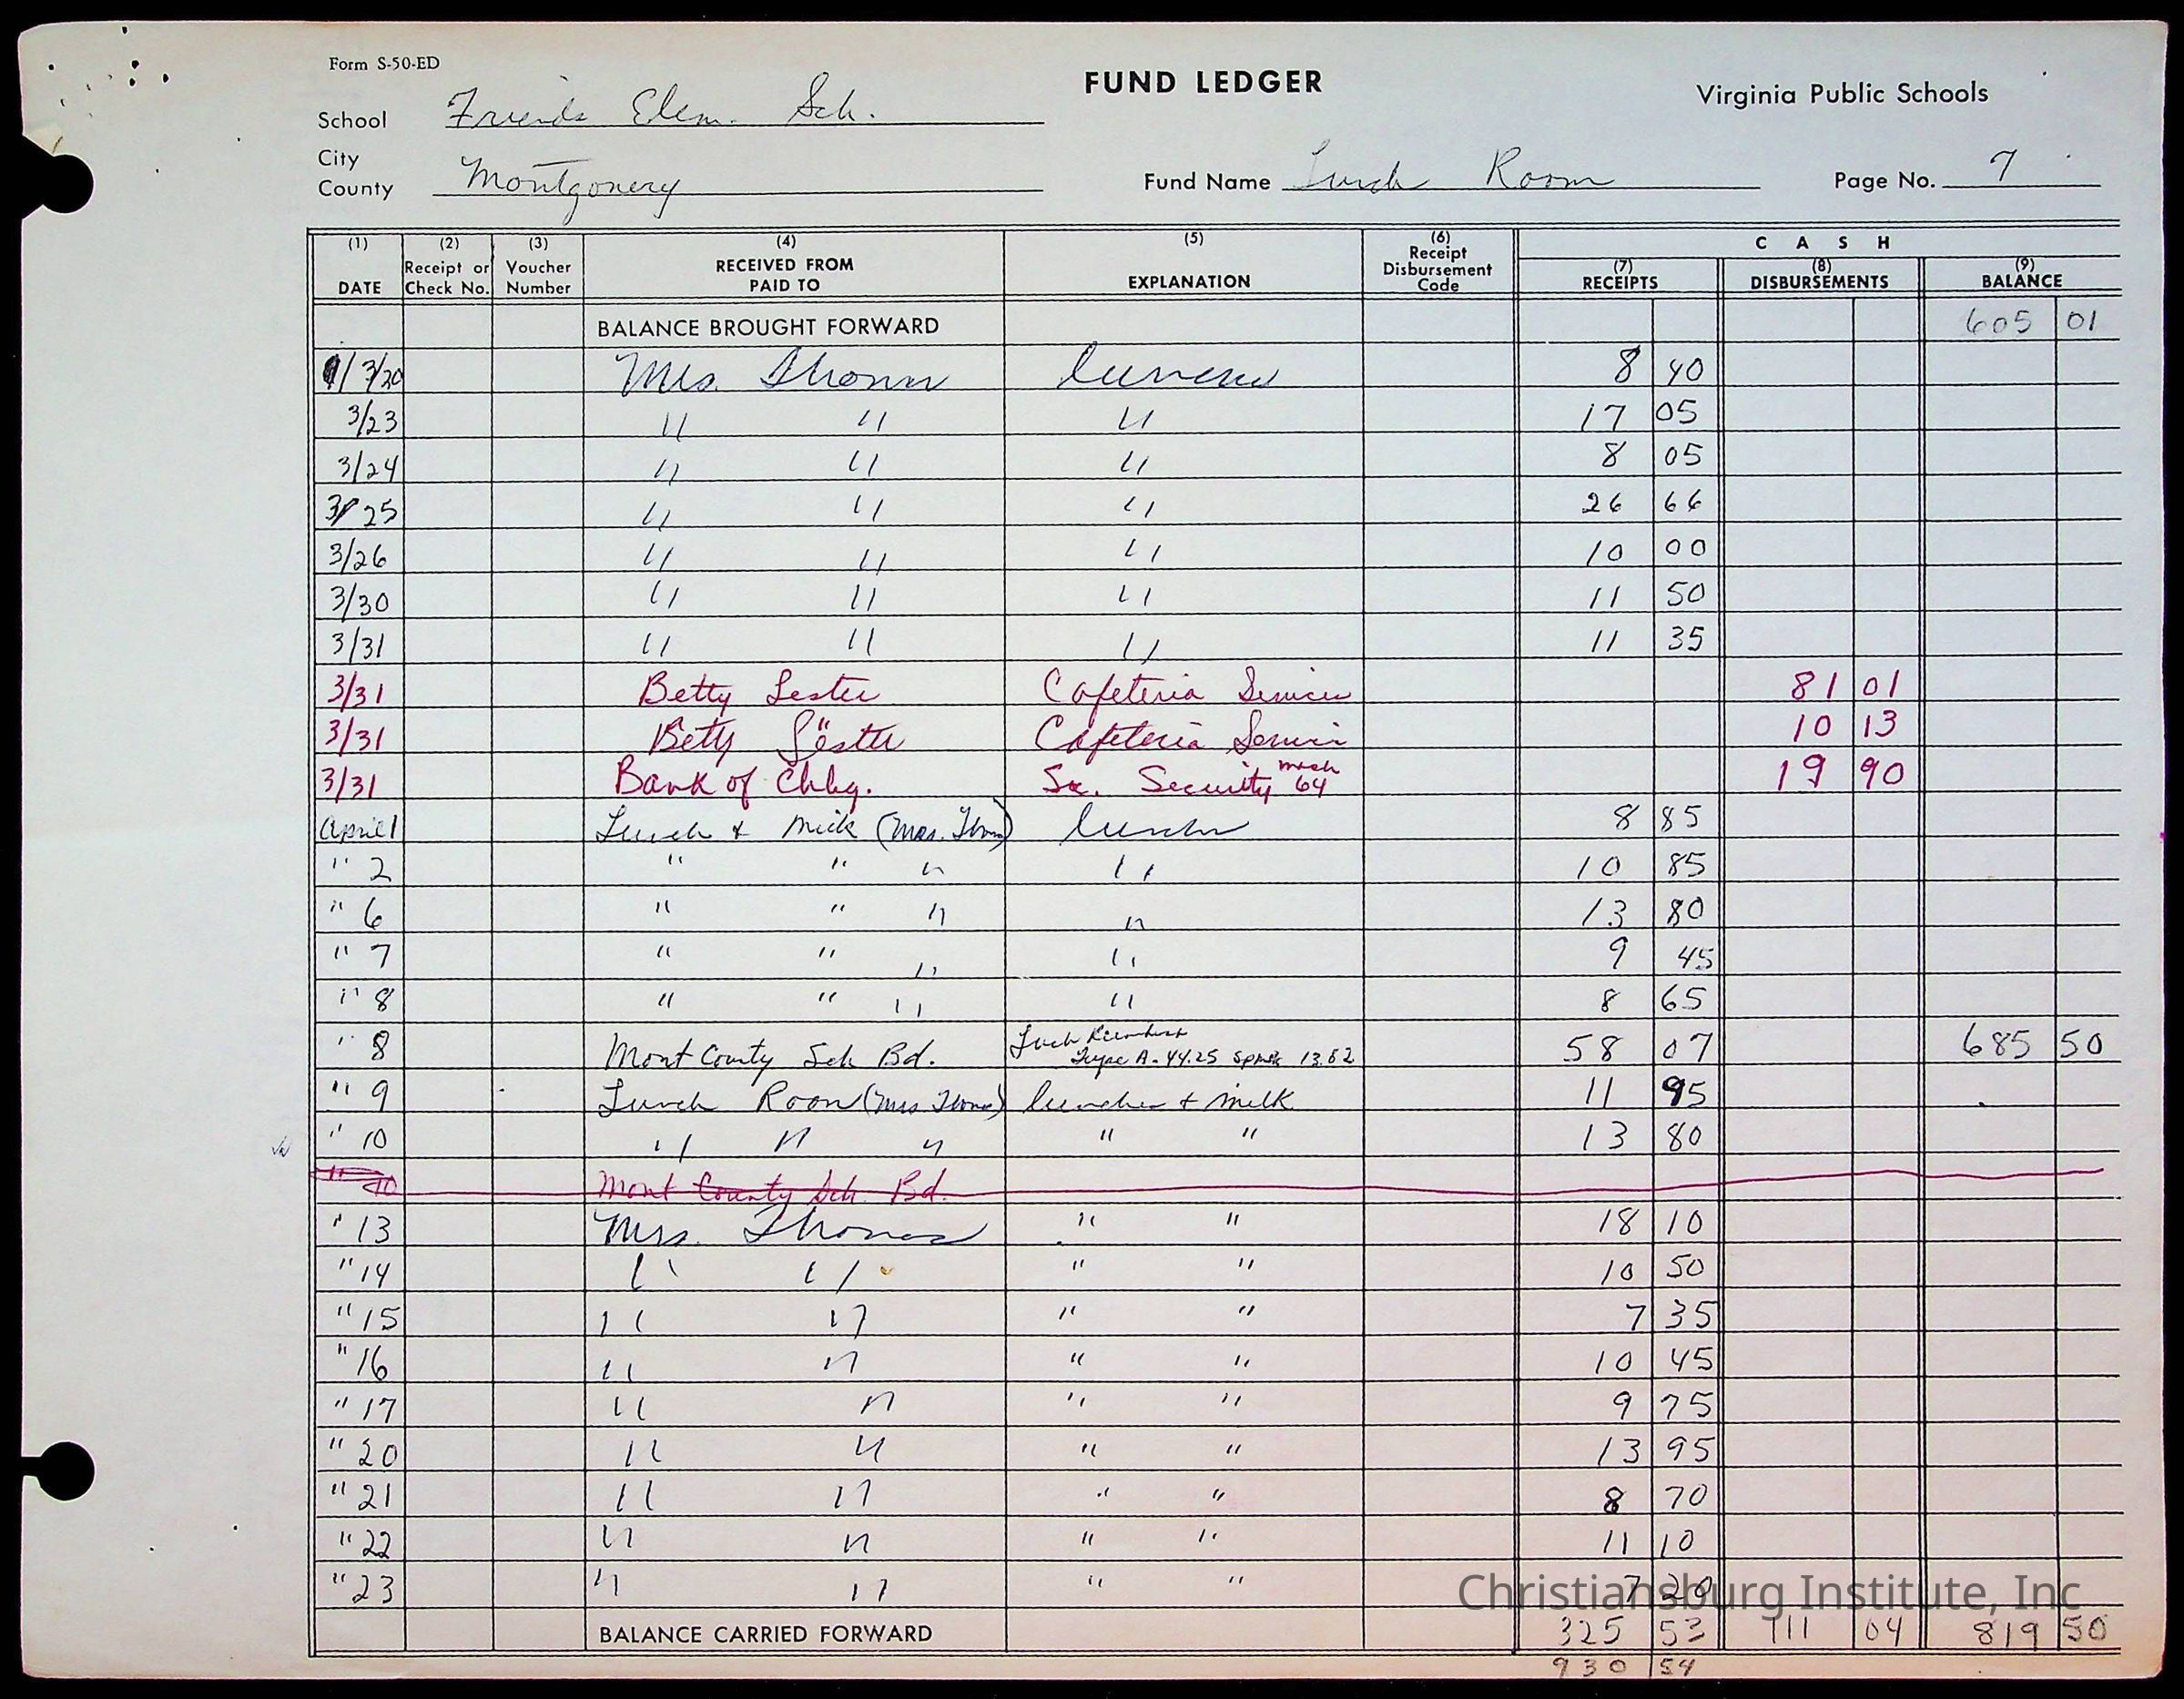 Form S-50-ED
FUND LEDGER
Virginia Public Schools
School Friends Elem. Sch.
City
County Montgomery
Fund Name Lunch Room Page No. 7
(1) (2) (3) (4) (5) (6) C A S H
DATE Receipt or Check No. Voucher Number RECEIVED FROM PAID TO EXPLANATION Receipt Disbursement Code (7) RECEIPTS (8) DISBURSEMENTS (9) BALANCE
BALANCE BROUGHT FORWARD 605 01
3/20 Mrs. Thomas lunches 8 40
3/23 " " " 17 05
3/24 " " " 8 05
3/25 " " " 26 66
3/26 " " " 10 00
3/30 " " " 11 50
3/31 " " " 11 35
3/31 Betty Lester Cafeteria Services 81 01
3/31 Betty Lester Cafeteria Service 10 13
3/31 Bank of Chbg. Sc. Security 64 19 90
April 1 Lunch & Milk (Mrs. Thomas) lunches 8 85
" 2 " " " " 10 85
" 6 " " " " 13 80
" 7 " " " " 9 45
" 8 " " " " 8 65
" 8 Mont County Sch Bd. Type A - 44.25 13.82 58 07 685 50
" 9 Lunch Room (Mrs Thomas) lunches & milk 11 95
" 10 " " " " " 13 80
" 10 Mont County Sch Bd.
" 13 Mrs. Thomas " " 18 10
" 14 " " " " 10 50
" 15 " " " " 7 35
" 16 " " " " 10 45
" 17 " " " " 9 75
" 20 " " " " 13 95
" 21 " " " " 8 70
" 22 " " " " 11 10
" 23 " " " " 7 20
Christiansburg Institute, Inc
BALANCE CARRIED FORWARD 325 53 111 04 819 50
930 54